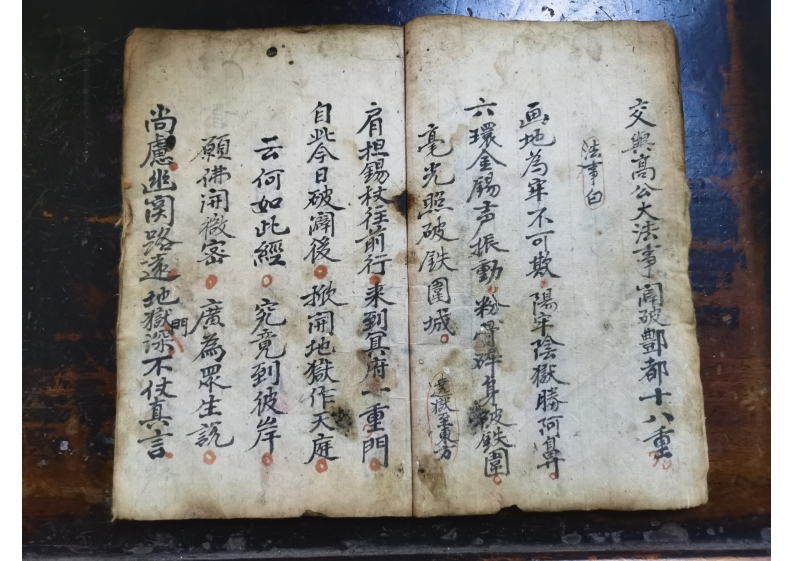 交與高公大法事 闹破酆都十八重
法事白
画地為牢不可欺 陽牢陰獄勝阿鼻
六環金錫声振動 粉骨碎身破鉄圍
毫光照破鉄圍城
遶獄至東方
肩担錫杖往前行 来到其府一重門
自此今日破闹後 掀開地獄作天庭
云何如此經 究竟到彼岸
願佛開微密 廣為眾生說
尚慮幽関路遠 地獄門深 不仗真言